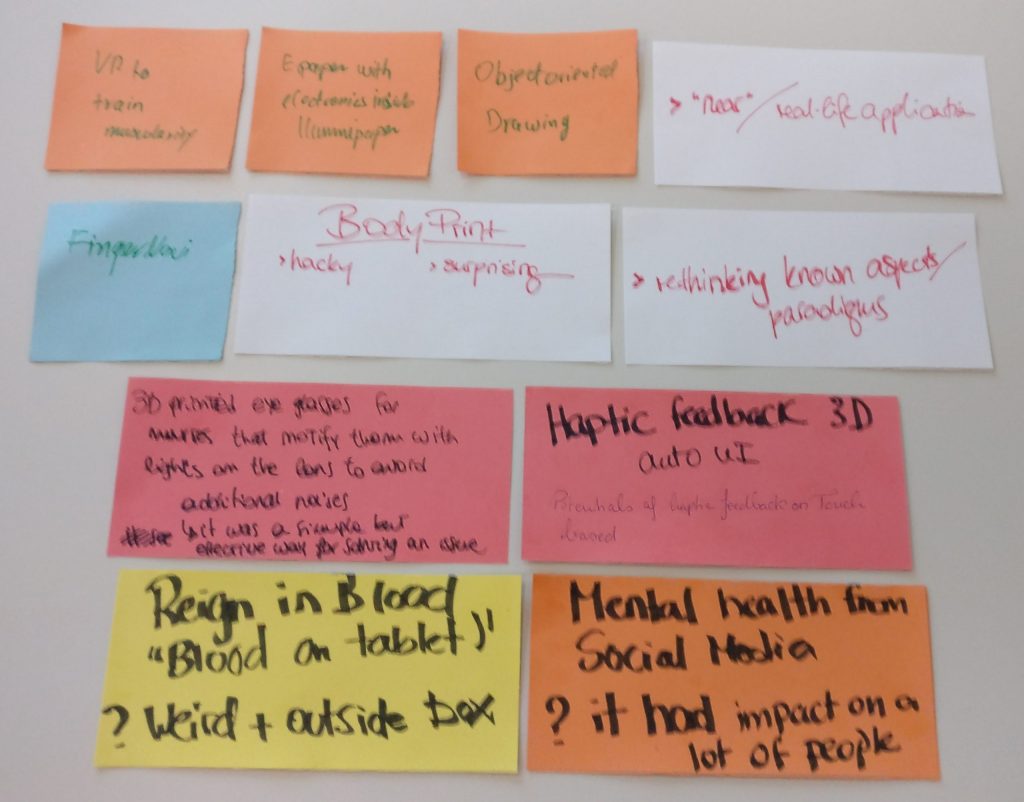 VR to
train
muscularity
Epaper with
electronics inside
Illumipaper
Object oriented
Drawing
> "near" / real-life application
FingerNavi
BodyPrint
> hacky > surprising
> rethinking known aspects/
paradigms
3D printed eye glasses for
nurses that notify them with
lights on the lens to avoid
additional noises
↳ it was a simple but
effective way for solving an issue
Haptic feedback 3D
auto UI
Potentials of haptic feedback on Touch
based
Reign in Blood
"Blood on tablet)"
? Weird + outside box
Mental health from
Social Media
? it had impact on a
lot of people